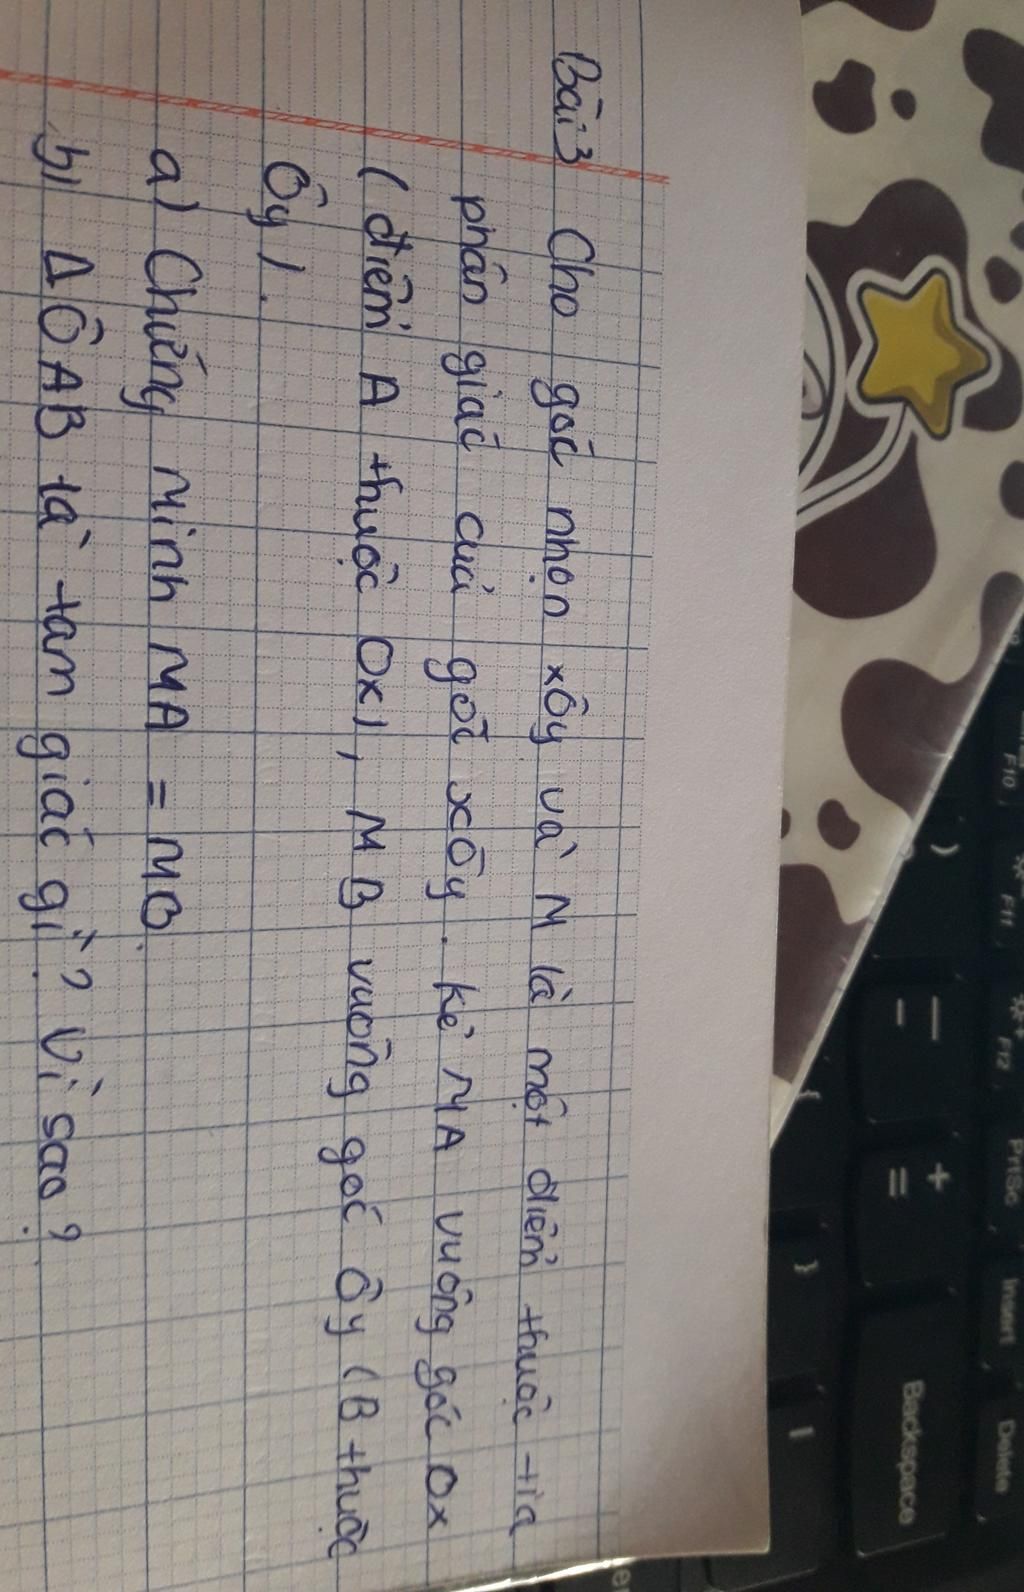 Bài 3 Cho góc nhọn xÔy và M là một điểm thuộc tia
phân giác của góc xÔy. kẻ MA vuông góc Ox
(điểm A thuộc Ox), MB vuông góc Ôy (B thuộc
Ôy).
a) Chứng minh MA = MB.
b) Δ ÔAB là tam giác gì? Vì sao?
F10
F11
F12
PrtSc
Insert
Delete
)
_
-
+
=
Backspace
{
}
|